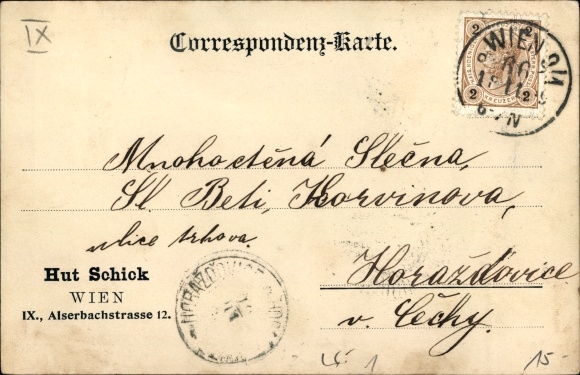 IX
Correspondenz-Karte.
2 2
2 2
WIEN
Mnohoctěná Slečna,
Sl. Beti, Korvinova,
ulice trhova.
Hut Schick
WIEN
IX., Alserbachstrasse 12.
HORAŽĎOVICE
Horažďovice
v Čechy.
1 15-